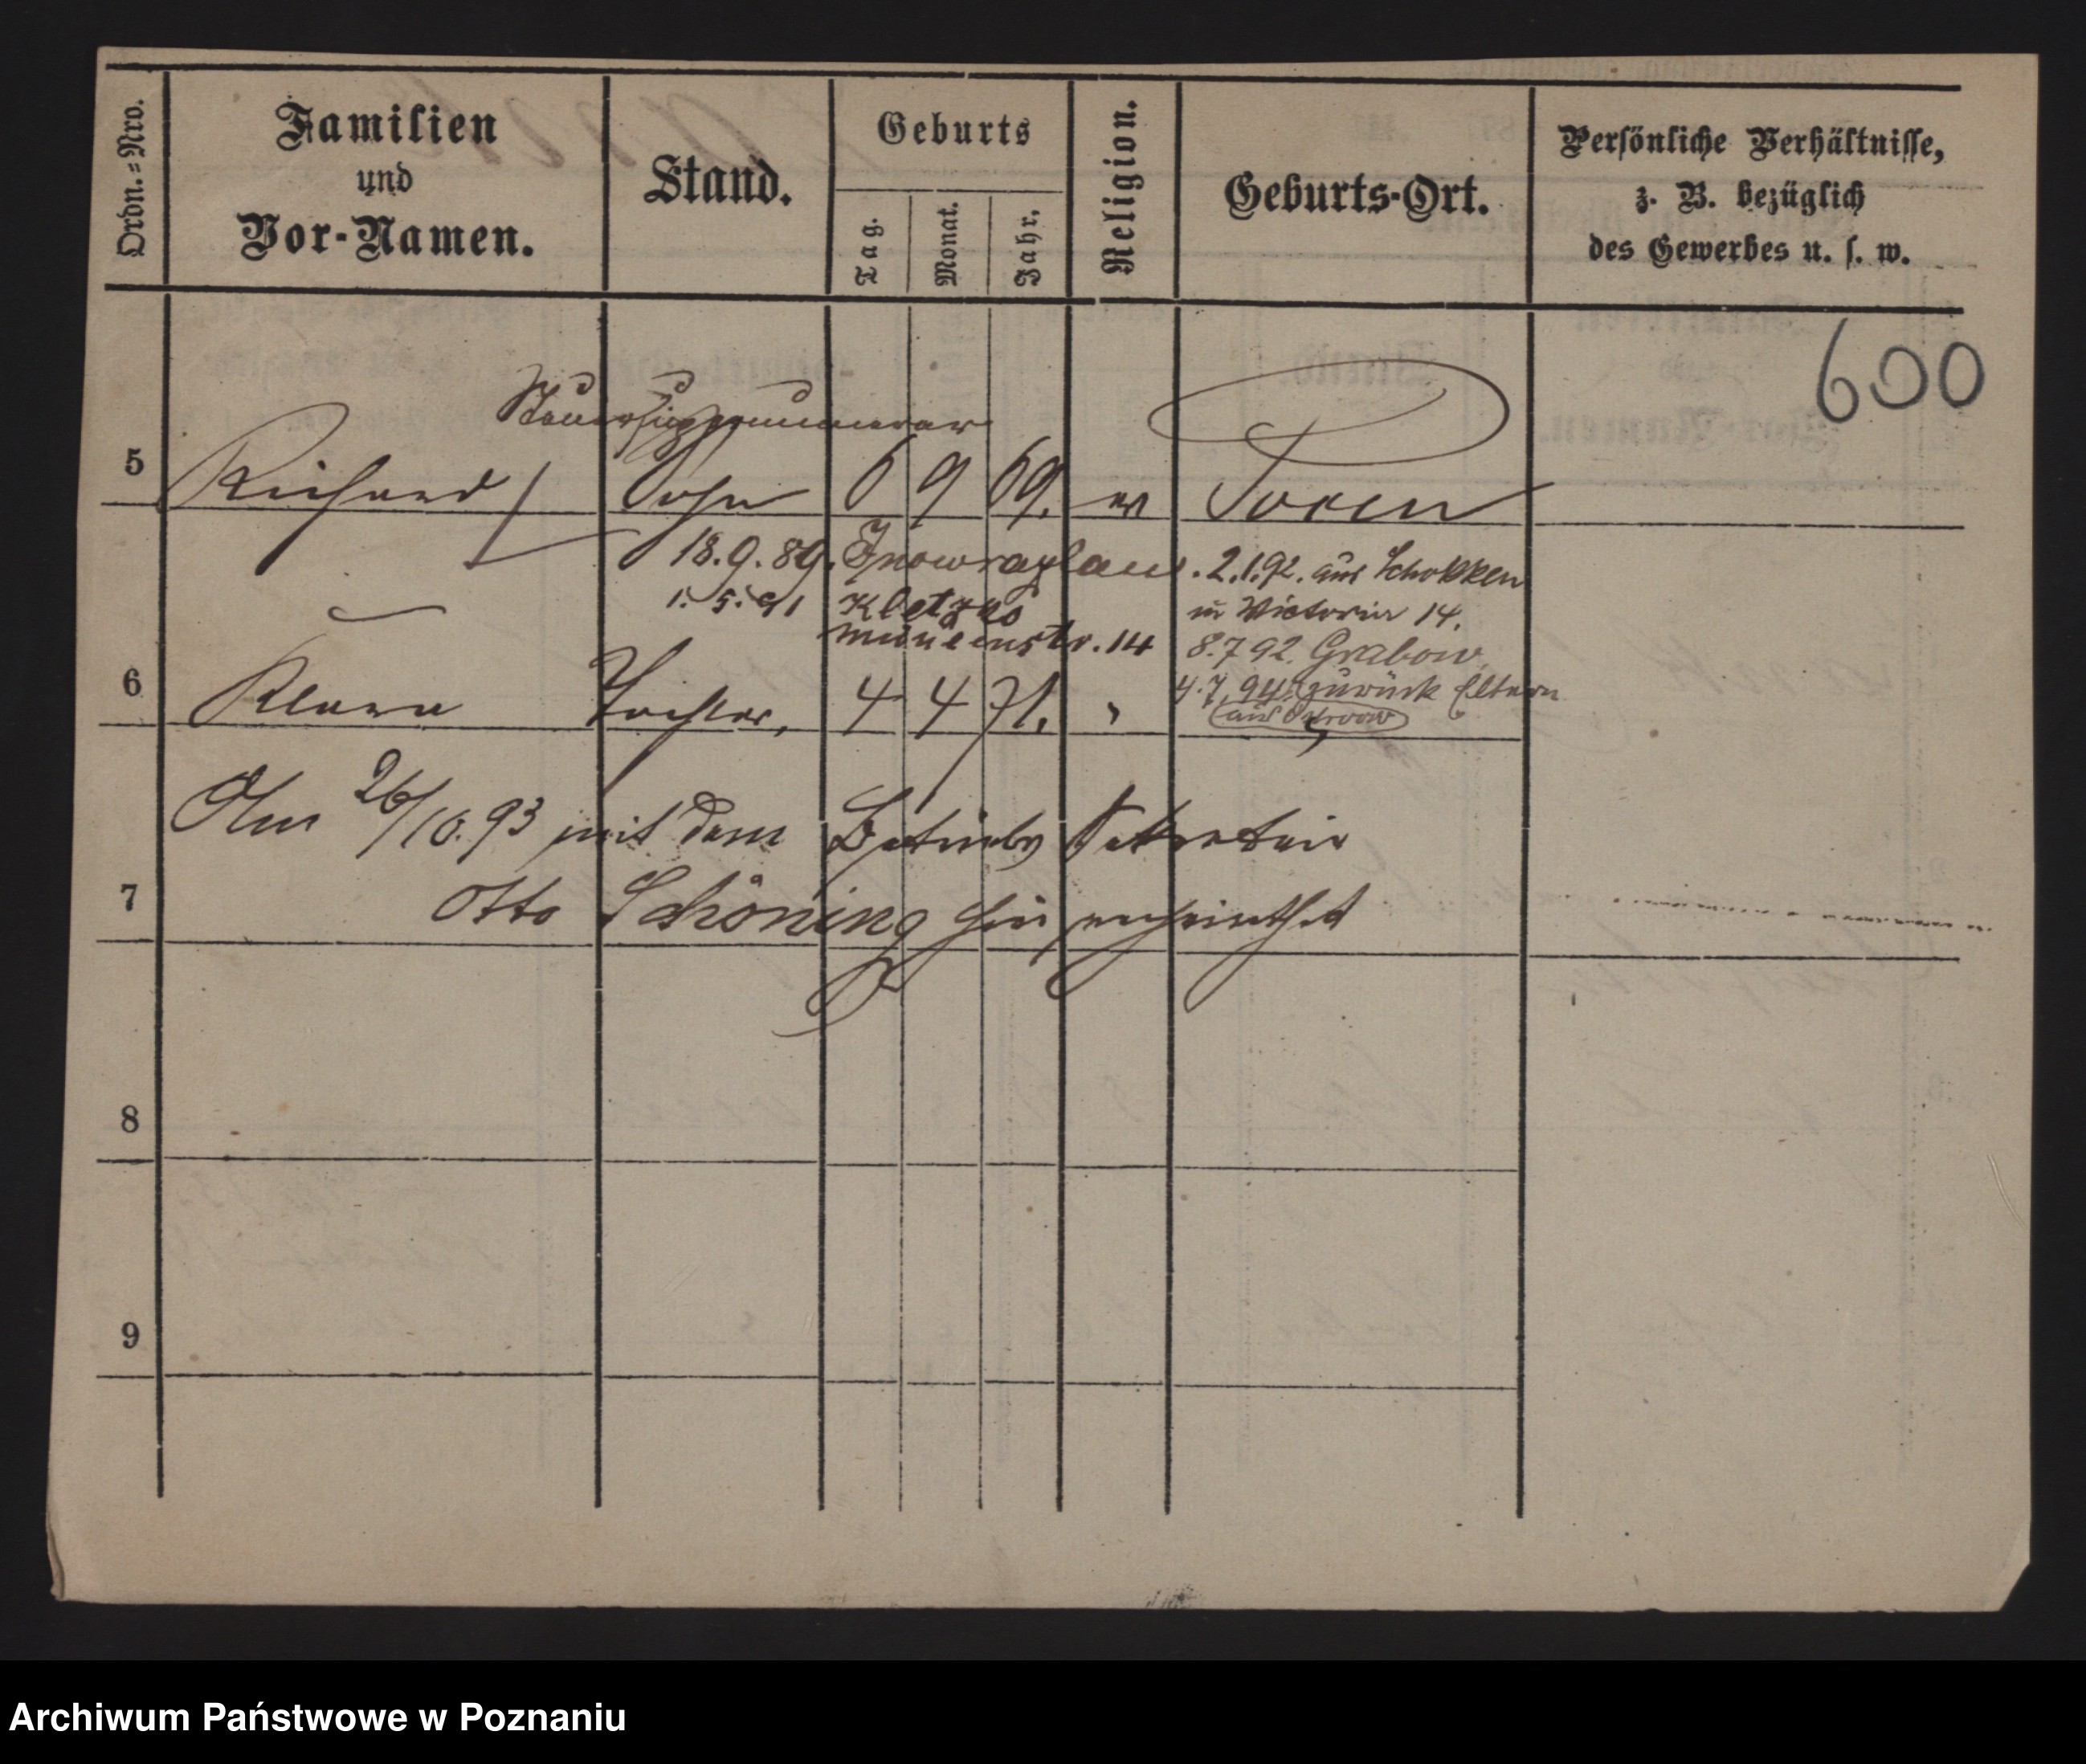 Ordn.=Nro.
Familien
und
Vor-Namen.
Stand.
Geburts
Tag.
Monat.
Jahr.
Religion.
Geburts-Ort.
Persönliche Verhältnisse,
z. B. bezüglich
des Gewerbes u. s. w.
600
Steuersupernumerar
5 Richard Sohn 6 9 69. ev Posen
18.9.89. Inowrazlaw. 2.1.92. aus Schokken
1. 5. 91 Kletzko in Victoria 14.
Mühlenstr. 14 8.7 92. Grabow
4.7.94. zurück Eltern
6 Klara Tochter, 4 4 71. "
Am 26/10.93 mit dem Betriebs Sekretair
7 Otto Schöning hier verheirathet
8
9
Archiwum Państwowe w Poznaniu